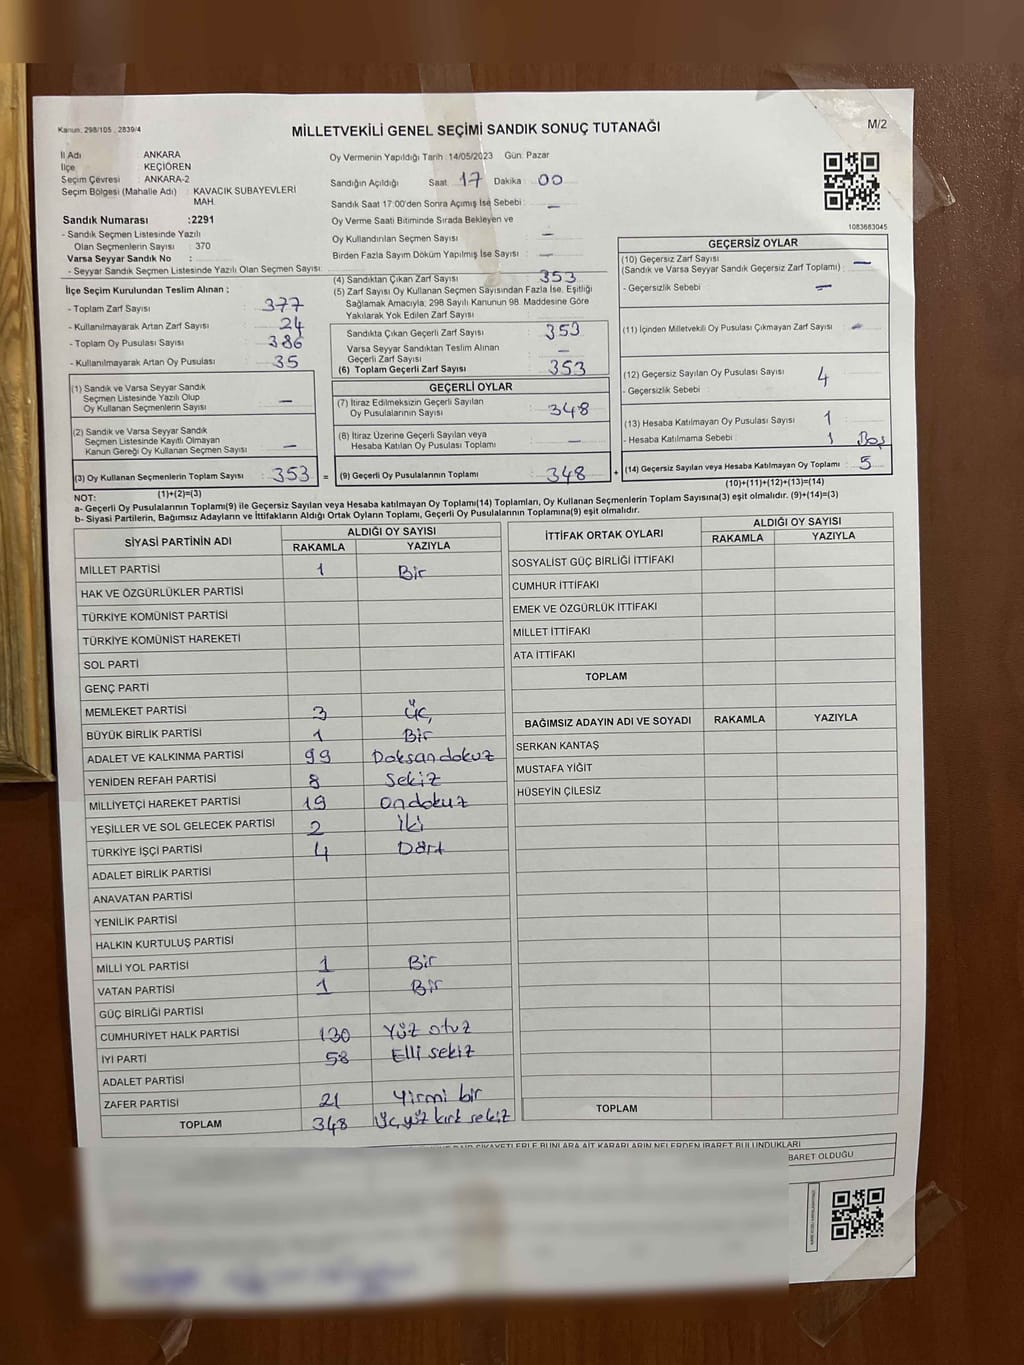 Kanun, 298/105 , 2839/4
MİLLETVEKİLİ GENEL SEÇİMİ SANDIK SONUÇ TUTANAĞI
M/2
İl Adı ANKARA
İlçe KEÇİÖREN
Seçim Çevresi ANKARA-2
Seçim Bölgesi (Mahalle Adı) : KAVACIK SUBAYEVLERİ
MAH.
Sandık Numarası :2291
- Sandık Seçmen Listesinde Yazılı
Olan Seçmenlerin Sayısı : 370
Varsa Seyyar Sandık No :
- Seyyar Sandık Seçmen Listesinde Yazılı Olan Seçmen Sayısı
İlçe Seçim Kurulundan Teslim Alınan :
- Toplam Zarf Sayısı 377
- Kullanılmayarak Artan Zarf Sayısı 24
- Toplam Oy Pusulası Sayısı 386
- Kullanılmayarak Artan Oy Pusulası 35
(1) Sandık ve Varsa Seyyar Sandık
Seçmen Listesinde Yazılı Olup
Oy Kullanan Seçmenlerin Sayısı : —
(2) Sandık ve Varsa Seyyar Sandık
Seçmen Listesinde Kayıtlı Olmayan
Kanun Gereği Oy Kullanan Seçmen Sayısı : —
(3) Oy Kullanan Seçmenlerin Toplam Sayısı : 353 =
(1)+(2)=(3)
Oy Vermenin Yapıldığı Tarih : 14/05/2023 Gün: Pazar
Sandığın Açıldığı Saat 17 Dakika 00
Sandık Saat 17:00'den Sonra Açımış İse Sebebi : —
Oy Verme Saati Bitiminde Sırada Bekleyen ve
Oy Kullandırılan Seçmen Sayısı —
Birden Fazla Sayım Döküm Yapılmış İse Sayısı —
(4) Sandıktan Çıkan Zarf Sayısı 353
(5) Zarf Sayısı Oy Kullanan Seçmen Sayısından Fazla İse, Eşitliği
Sağlamak Amacıyla; 298 Sayılı Kanunun 98. Maddesine Göre
Yakılarak Yok Edilen Zarf Sayısı
Sandıkta Çıkan Geçerli Zarf Sayısı 353
Varsa Seyyar Sandıktan Teslim Alınan
Geçerli Zarf Sayısı —
(6) Toplam Geçerli Zarf Sayısı 353
GEÇERLİ OYLAR
(7) İtiraz Edilmeksizin Geçerli Sayılan
Oy Pusulalarının Sayısı : 348
(8) İtiraz Üzerine Geçerli Sayılan veya
Hesaba Katılan Oy Pusulası Toplamı : —
(9) Geçerli Oy Pusulalarının Toplamı : 348 +
1083683045
GEÇERSİZ OYLAR
(10) Geçersiz Zarf Sayısı
(Sandık ve Varsa Seyyar Sandık Geçersiz Zarf Toplamı) : —
- Geçersizlik Sebebi : —
(11) İçinden Milletvekili Oy Pusulası Çıkmayan Zarf Sayısı : —
(12) Geçersiz Sayılan Oy Pusulası Sayısı : 4
- Geçersizlik Sebebi :
(13) Hesaba Katılmayan Oy Pusulası Sayısı : 1
- Hesaba Katılmama Sebebi : 1 Boş
(14) Geçersiz Sayılan veya Hesaba Katılmayan Oy Toplamı : 5
(10)+(11)+(12)+(13)=(14)
NOT:
a- Geçerli Oy Pusulalarının Toplamı(9) ile Geçersiz Sayılan veya Hesaba katılmayan Oy Toplamı(14) Toplamları, Oy Kullanan Seçmenlerin Toplam Sayısına(3) eşit olmalıdır. (9)+(14)=(3)
b- Siyasi Partilerin, Bağımsız Adayların ve İttifakların Aldığı Ortak Oyların Toplamı, Geçerli Oy Pusulalarının Toplamına(9) eşit olmalıdır.
SİYASİ PARTİNİN ADI ALDIĞI OY SAYISI
RAKAMLA YAZIYLA
MİLLET PARTİSİ 1 Bir
HAK VE ÖZGÜRLÜKLER PARTİSİ
TÜRKİYE KOMÜNİST PARTİSİ
TÜRKİYE KOMÜNİST HAREKETİ
SOL PARTİ
GENÇ PARTİ
MEMLEKET PARTİSİ 3 Üç
BÜYÜK BİRLİK PARTİSİ 1 Bir
ADALET VE KALKINMA PARTİSİ 99 Doksandokuz
YENİDEN REFAH PARTİSİ 8 Sekiz
MİLLİYETÇİ HAREKET PARTİSİ 19 ondokuz
YEŞİLLER VE SOL GELECEK PARTİSİ 2 İki
TÜRKİYE İŞÇİ PARTİSİ 4 Dört
ADALET BİRLİK PARTİSİ
ANAVATAN PARTİSİ
YENİLİK PARTİSİ
HALKIN KURTULUŞ PARTİSİ
MİLLİ YOL PARTİSİ 1 Bir
VATAN PARTİSİ 1 Bir
GÜÇ BİRLİĞİ PARTİSİ
CUMHURİYET HALK PARTİSİ 130 Yüz otuz
İYİ PARTİ 58 Elli sekiz
ADALET PARTİSİ
ZAFER PARTİSİ 21 Yirmi bir
TOPLAM 348 Üçyüz kırk sekiz
İTTİFAK ORTAK OYLARI ALDIĞI OY SAYISI
RAKAMLA YAZIYLA
SOSYALİST GÜÇ BİRLİĞİ İTTİFAKI
CUMHUR İTTİFAKI
EMEK VE ÖZGÜRLÜK İTTİFAKI
MİLLET İTTİFAKI
ATA İTTİFAKI
TOPLAM
BAĞIMSIZ ADAYIN ADI VE SOYADI RAKAMLA YAZIYLA
SERKAN KANTAŞ
MUSTAFA YİĞİT
HÜSEYİN ÇİLESİZ
TOPLAM
ŞİKAYETLERLE BUNLARA AİT KARARLARIN NELERDEN İBARET BULUNDUKLARI
İBARET OLDUĞU